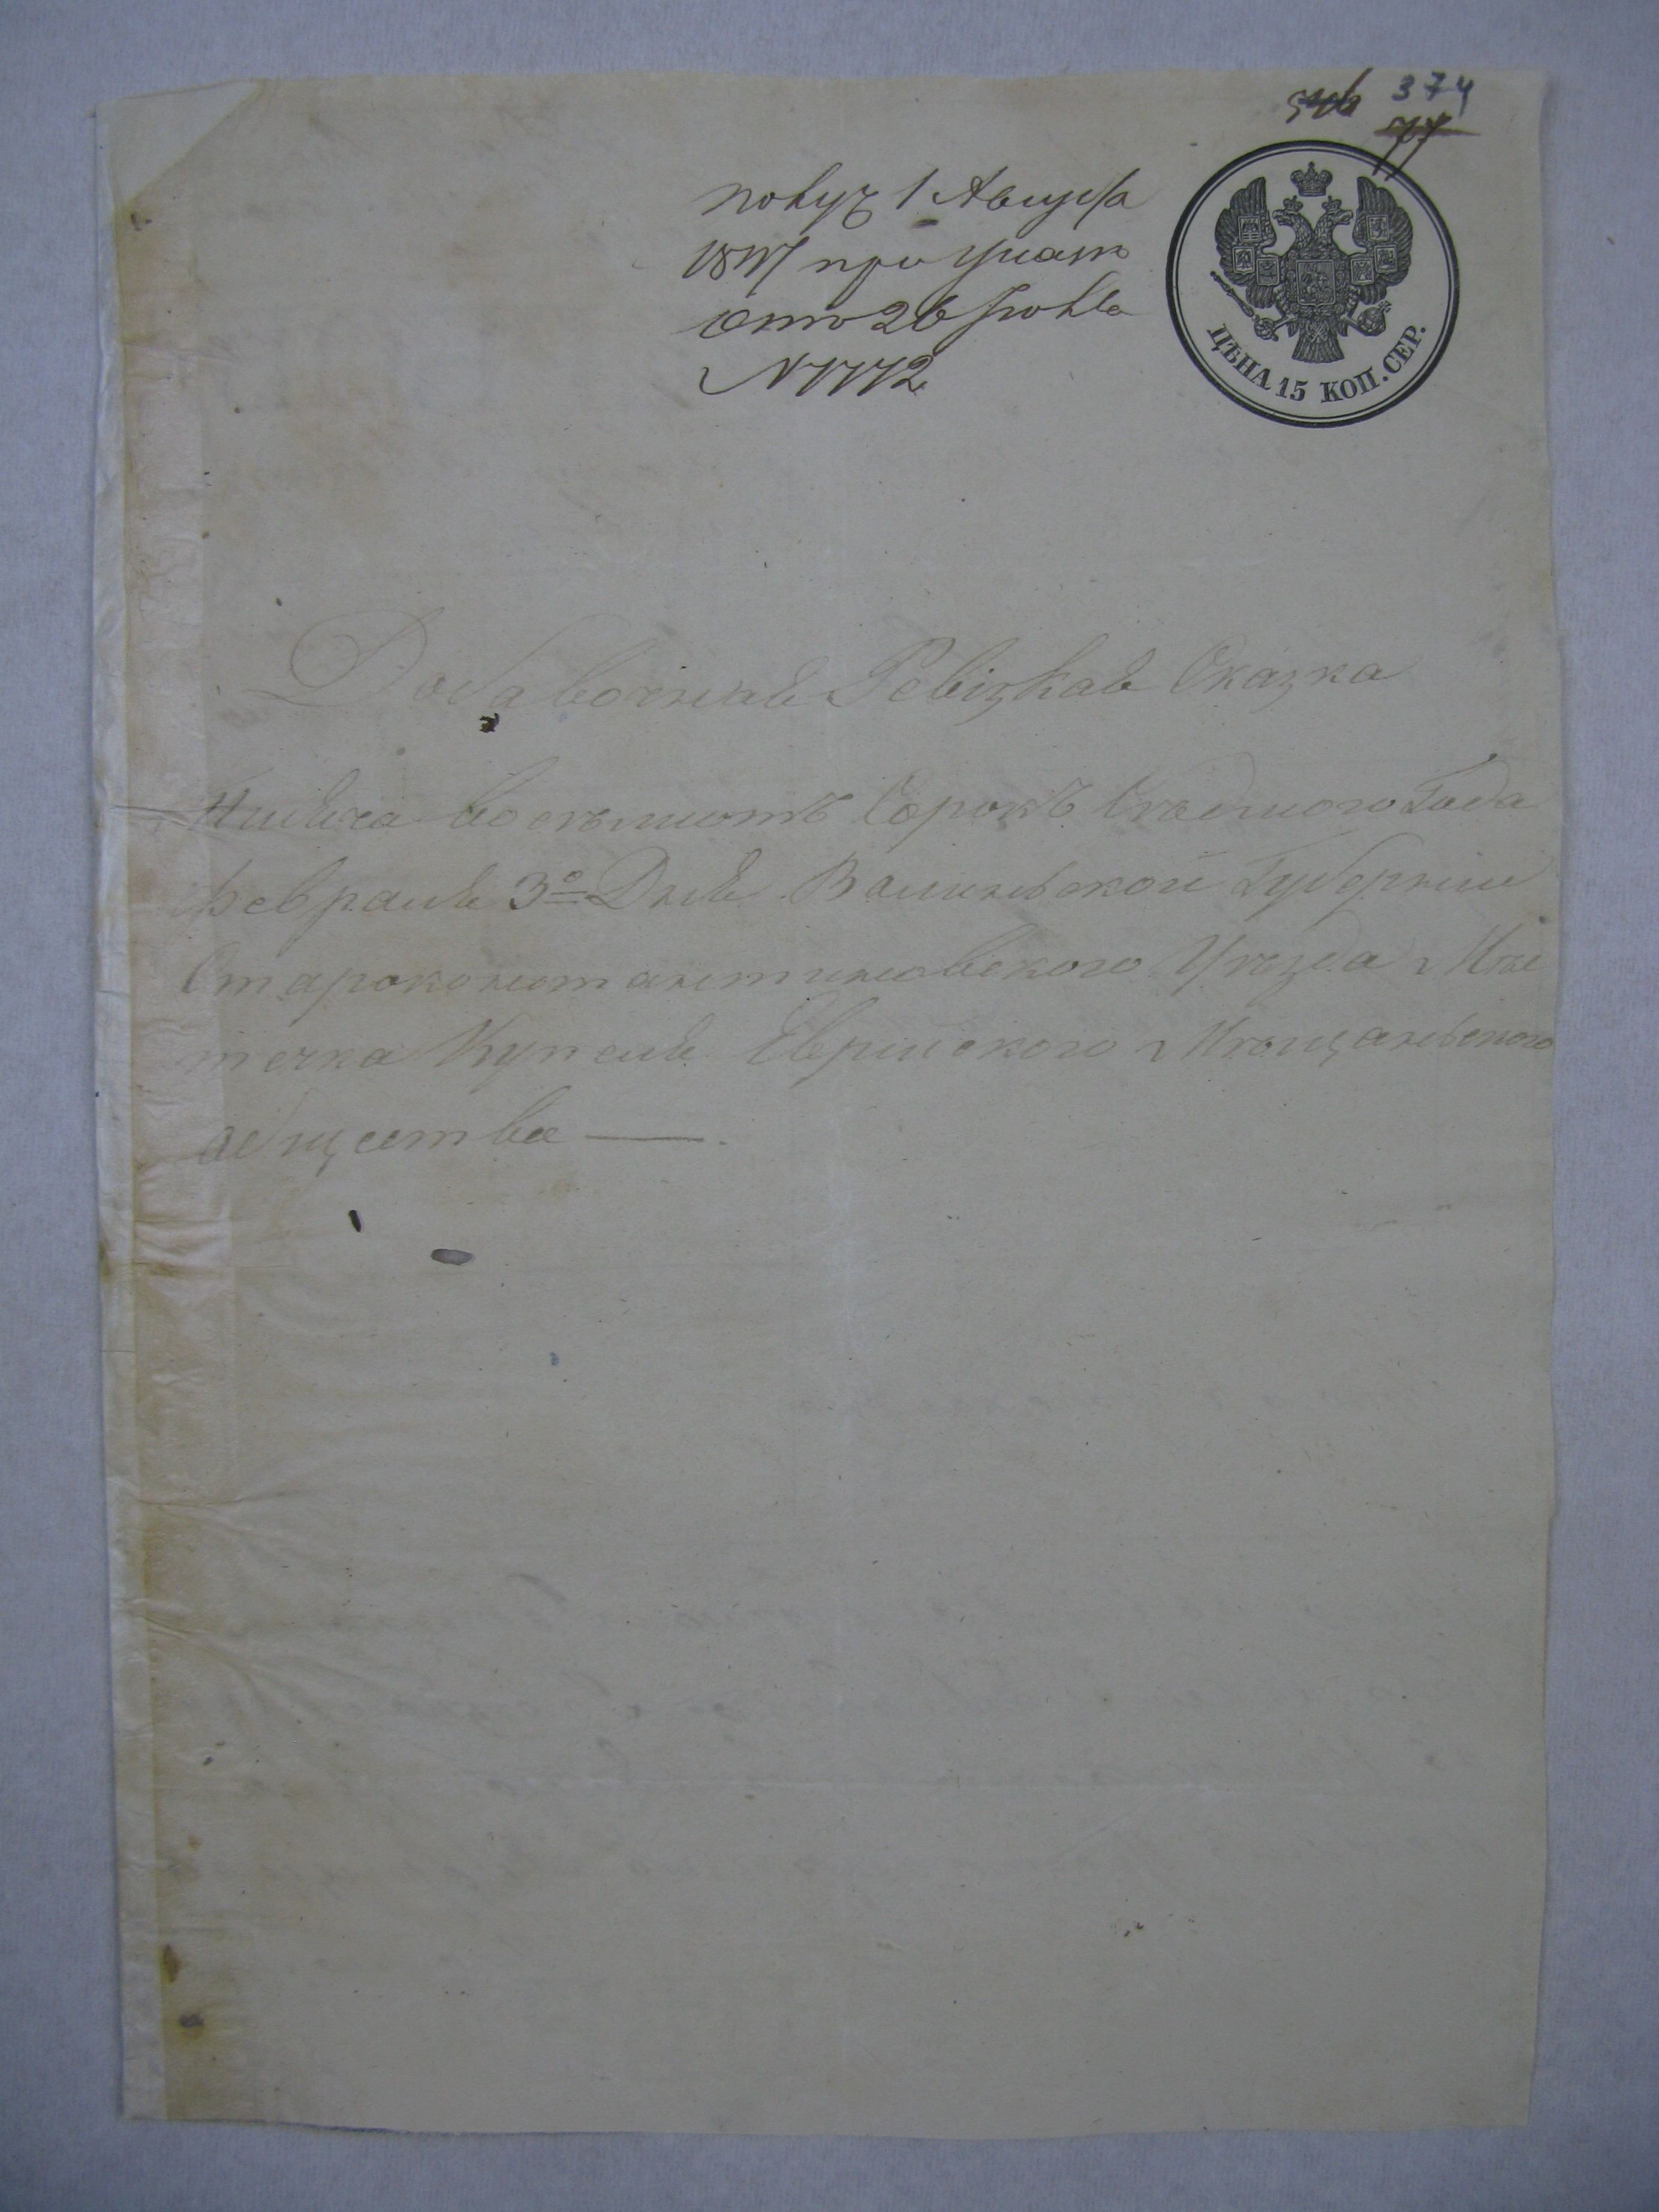 374
получ 1 Августа
1847 при указѣ
отъ 26 Іюля
N 7772
ЦѢНА 15 КОП. СЕР.
Добавочная Ревізкая Сказка
Тысяча восемьсотъ Сорокъ Седмого Года
февраля 3го Дня Волынской Губерніи
Староконстантиновского Уѣзда Мѣс
течка Купеля Еврейского Мѣщанского
общества —.